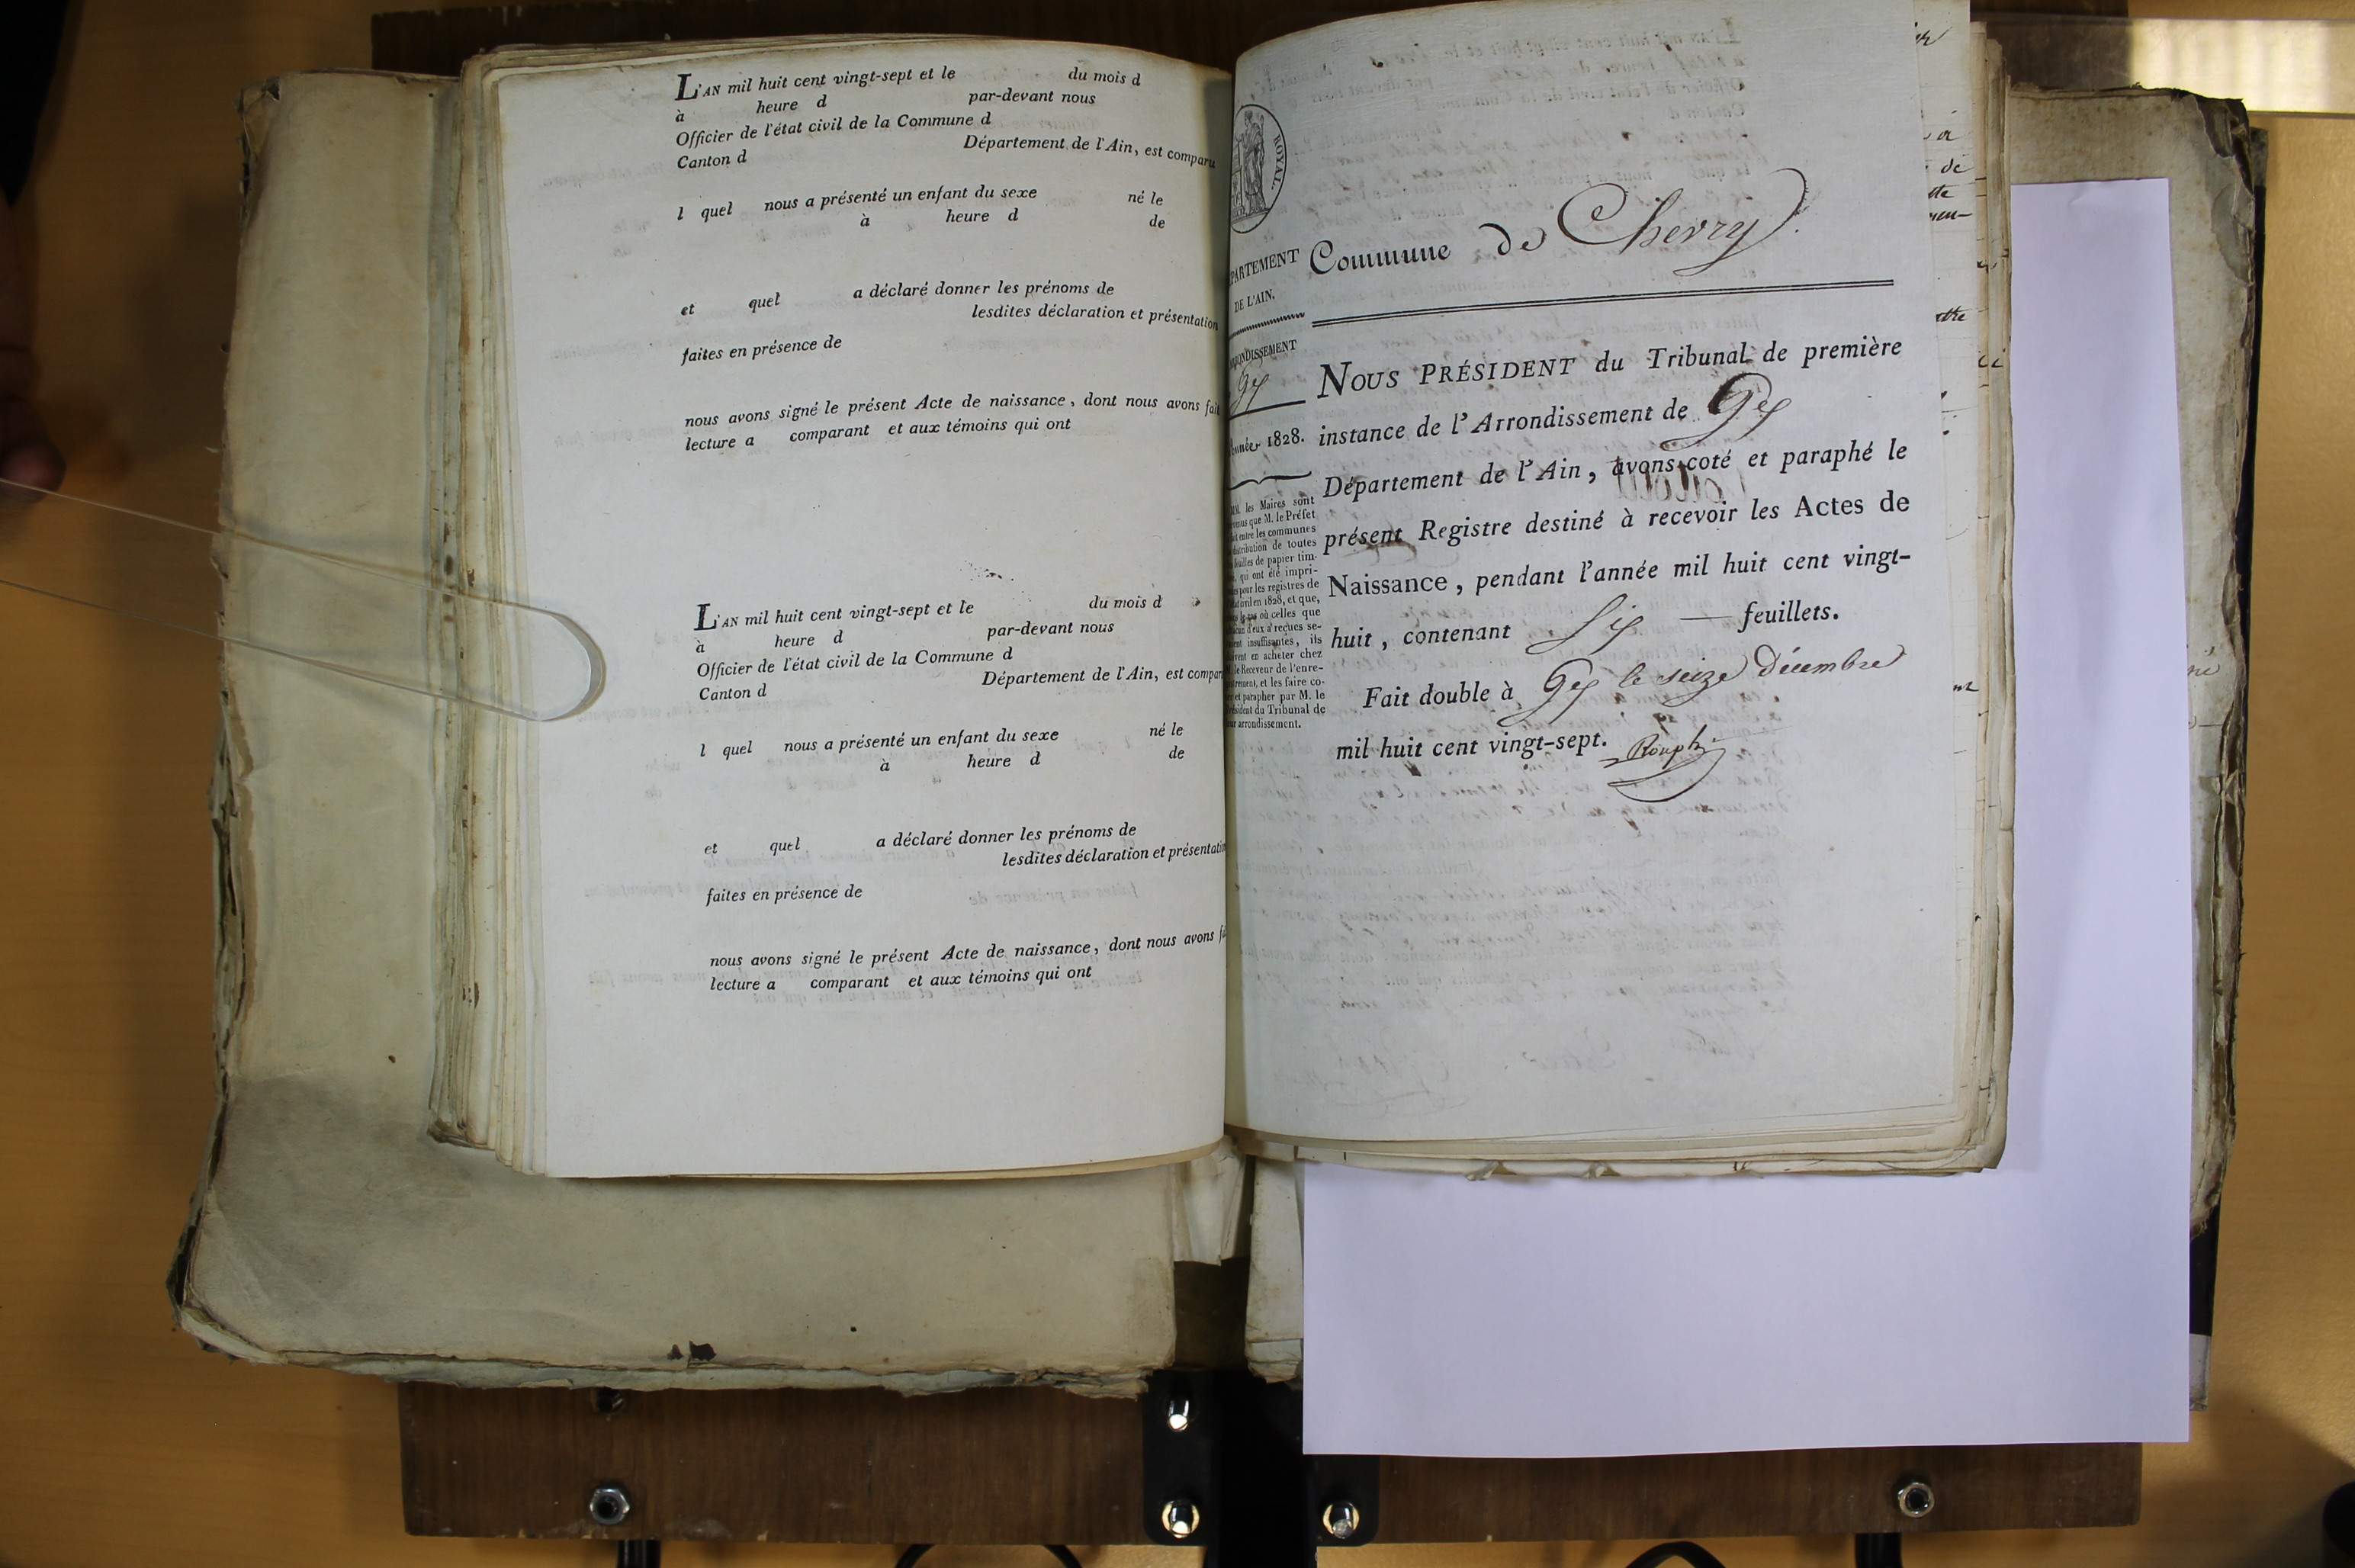 L'AN mil huit cent vingt-sept et le du mois d
à heure d par-devant nous
Officier de l'état civil de la Commune d
Canton d Département de l'Ain, est comparu
l quel nous a présenté un enfant du sexe né le
à heure d de
et quel a déclaré donner les prénoms de
lesdites déclaration et présentation
faites en présence de
nous avons signé le présent Acte de naissance, dont nous avons fait
lecture a comparant et aux témoins qui ont
L'AN mil huit cent vingt-sept et le du mois d
à heure d par-devant nous
Officier de l'état civil de la Commune d
Canton d Département de l'Ain, est compar
l quel nous a présenté un enfant du sexe né le
à heure d de
et quel a déclaré donner les prénoms de
lesdites déclaration et présentation
faites en présence de
nous avons signé le présent Acte de naissance, dont nous avons fa
lecture a comparant et aux témoins qui ont
ROYAL.
PARTEMENT
DE L'AIN.
RRONDISSEMENT
Gex
Année 1828.
MM. les Maires sont
venus que M. le Préfet
ait entre les communes
distribution de toutes
feuilles de papier tim-
, qui ont été impri-
es pour les registres de
état civil en 1828, et que,
s le cas où celles que
acun d'eux a reçues se-
ient insuffisantes, ils
ivent en acheter chez
le Receveur de l'enre-
trement, et les faire co-
er et parapher par M. le
résident du Tribunal de
ur arrondissement.
Commune de Chevry.
NOUS PRÉSIDENT du Tribunal de première
instance de l'Arrondissement de Gex
Département de l'Ain, avons coté et paraphé le
présent Registre destiné à recevoir les Actes de
Naissance, pendant l'année mil huit cent vingt-
huit, contenant Six — feuillets.
Fait double à Gex le seize Décembre
mil huit cent vingt-sept.